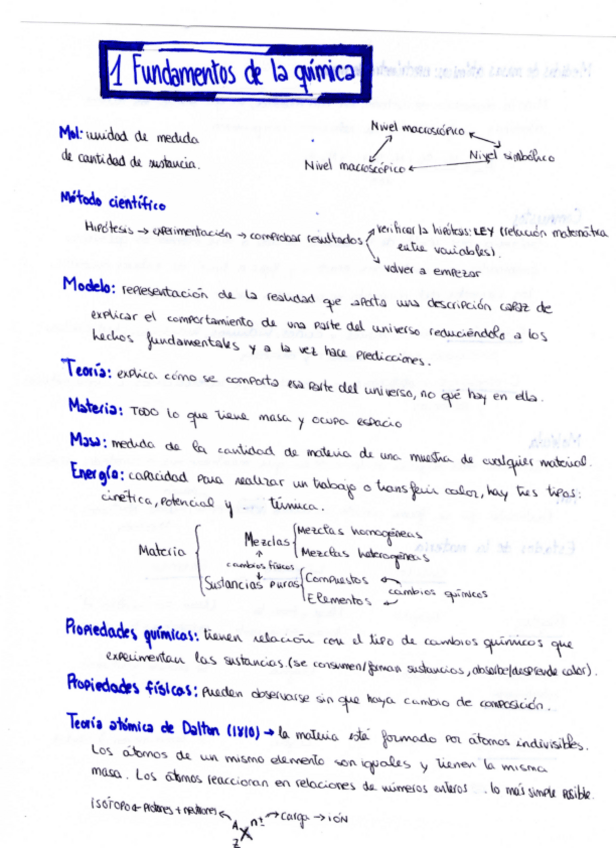 1 Fundamentos de la química
Mol: unidad de medida
de cantidad de sustancia.
Nivel macroscópico
Nivel macroscópico
Nivel simbólico
Método científico
Hipótesis → experimentación → comprobar resultados
verificar la hipótesis: LEY (relación matemática
entre variables).
volver a empezar
Modelo: representación de la realidad que aporta una descripción capaz de
explicar el comportamiento de una parte del universo reduciéndolo a los
hechos fundamentales y a la vez hace predicciones.
Teoría: explica cómo se comporta esa parte del universo, no qué hay en ella.
Materia: TODO lo que tiene masa y ocupa espacio
Masa: medida de la cantidad de materia de una muestra de cualquier material.
Energía: capacidad para realizar un trabajo o transferir calor, hay tres tipos:
cinética, potencial y térmica.
Materia
Mezclas
Mezclas homogéneas
Mezclas heterogéneas
cambios físicos
Sustancias puras
Compuestos
Elementos
cambios químicos
Propiedades químicas: tienen relación con el tipo de cambios químicos que
experimentan las sustancias (se consumen/forman sustancias, absorbe/desprende calor).
Propiedades físicas: pueden observarse sin que haya cambio de composición.
Teoría atómica de Dalton (1810) → la materia está formado por átomos indivisibles.
Los átomos de un mismo elemento son iguales y tienen la misma
masa. Los átomos reaccionan en relaciones de números enteros lo más simple posible.
isótopo ← protones + neutrones ← A X n± → carga → IÓN
Z